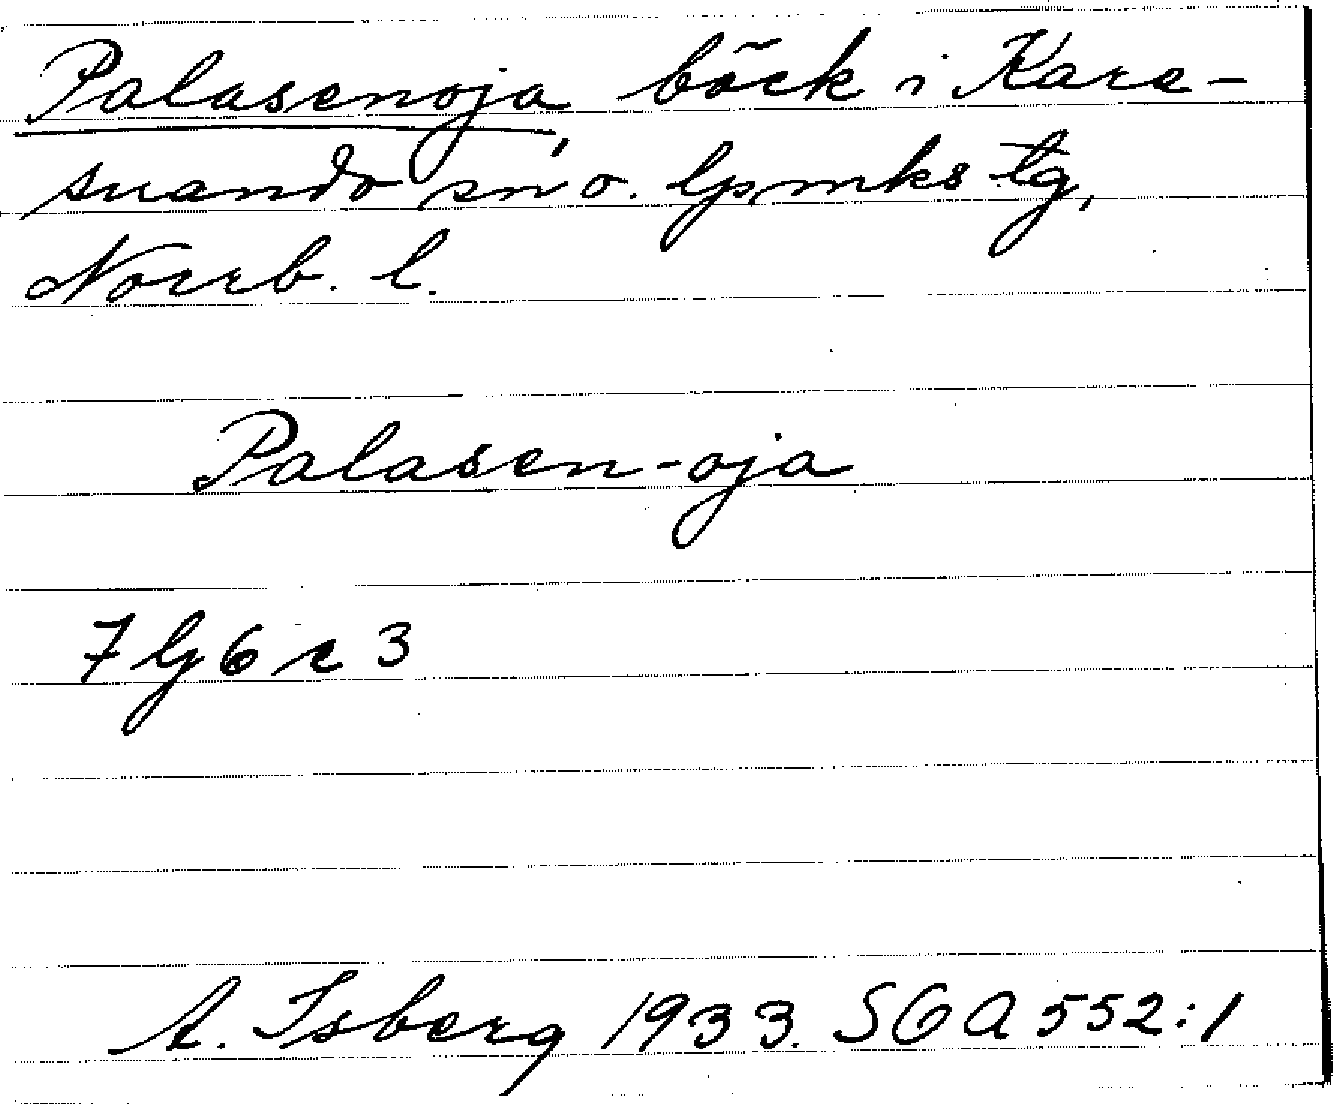 Palasenoja, bäck i Kare-
suando sn o. lpmks tg,
Norrb. l.
Palasen-oja
7 G 6 c 3
A. Isberg 1933. SOA 552:1